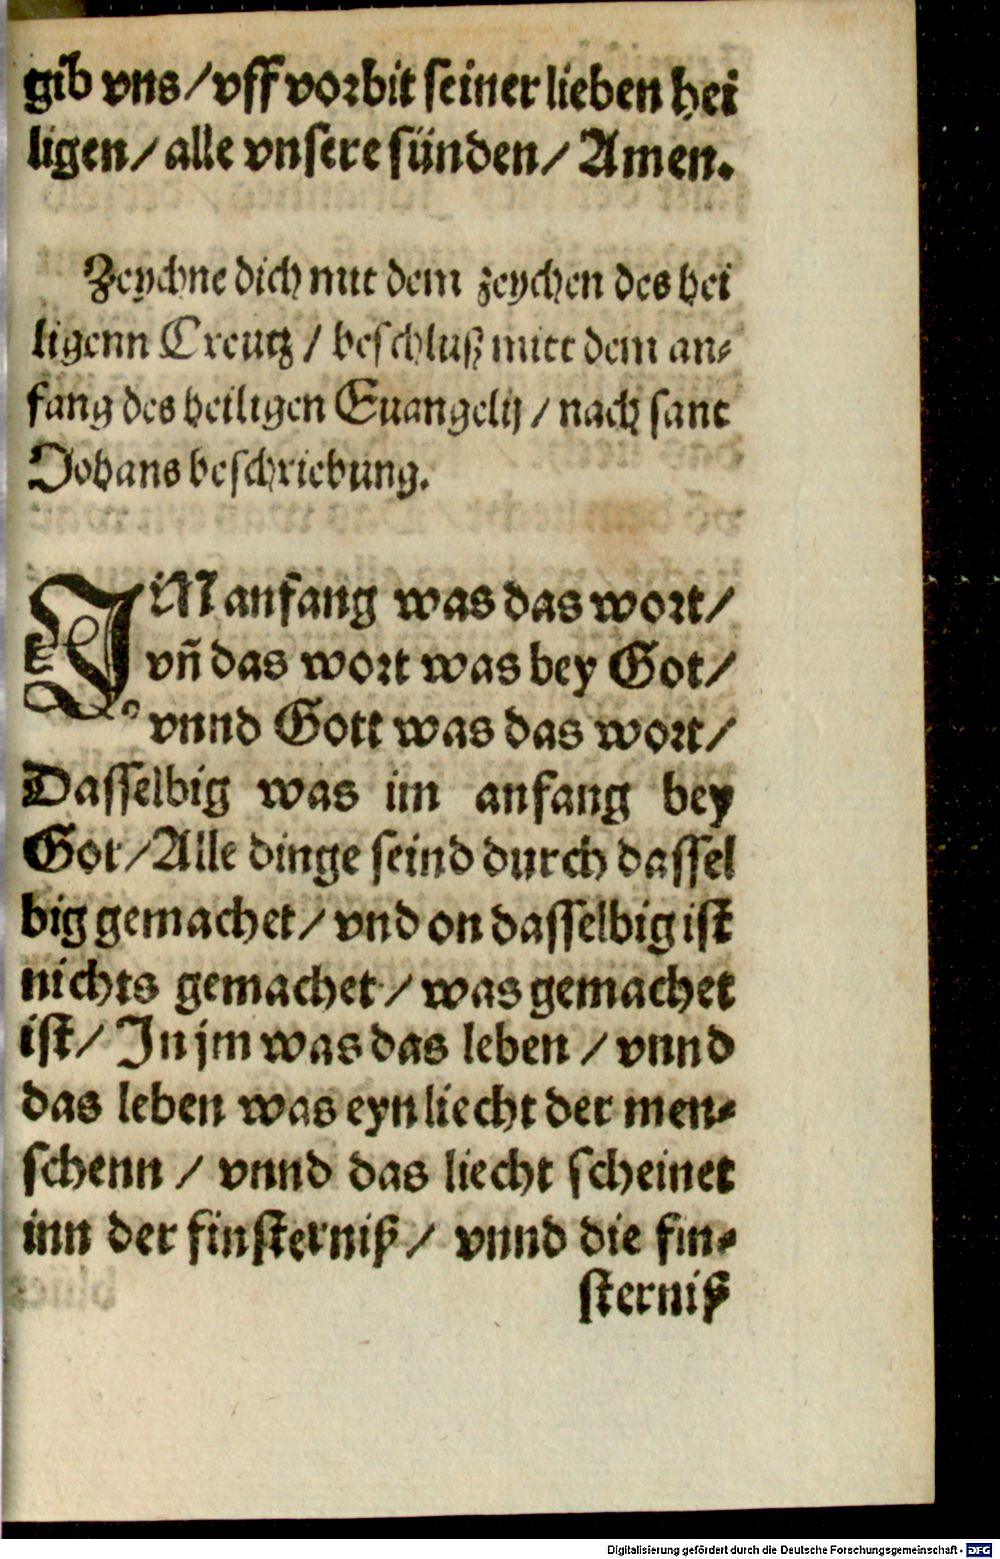 gib vns/vff vorbit seiner lieben hei
ligen/alle vnsere sünden/Amen.
Zeychne dich mit dem zeychen des hei
ligenn Creutz / beschluß mitt dem an⸗
fang des heiligen Euangelij / nach sant
Johans beschriebung.
IM anfang was das wort/
vn̄ das wort was bey Got/
vnnd Gott was das wort/
Dasselbig was im anfang bey
Got/Alle dinge seind durch dassel
big gemachet/vnd on dasselbig ist
nichts gemachet/was gemachet
ist/ In jm was das leben/vnnd
das leben was eyn liecht der men⸗
schenn / vnnd das liecht scheinet
inn der finsterniß/ vnnd die fin⸗
sterniß
Digitalisierung gefördert durch die Deutsche Forschungsgemeinschaft - DFG